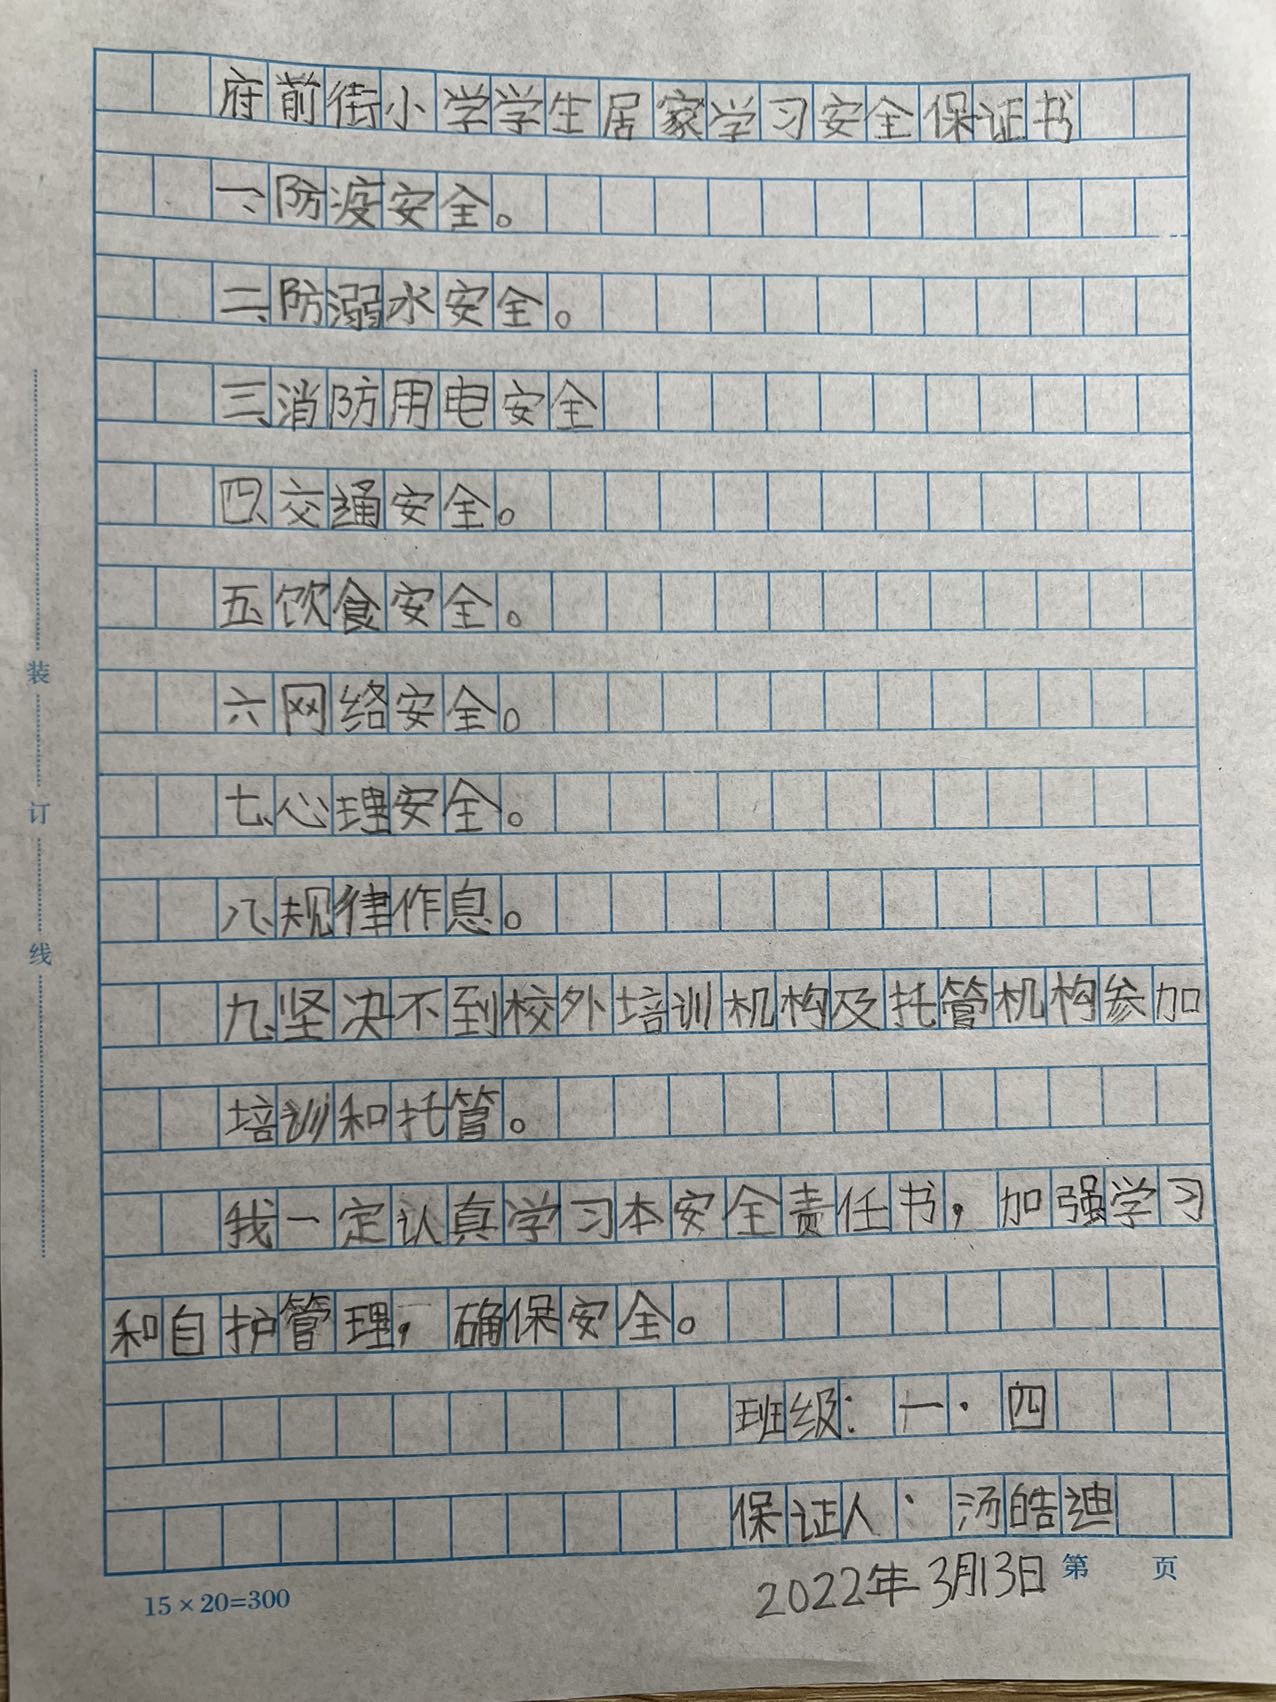 府前街小学学生居家学习安全保证书
一、防疫安全。
二、防溺水安全。
三、消防用电安全
四、交通安全。
五、饮食安全。
六网络安全。
七、心理安全。
八、规律作息。
九、坚决不到校外培训机构及托管机构参加
培训和托管。
我一定认真学习本安全责任书，加强学习
和自护管理，确保安全。
班级：一·四
保证人：汤皓迪
2022年3月13日
第 页
15×20=300
装
订
线